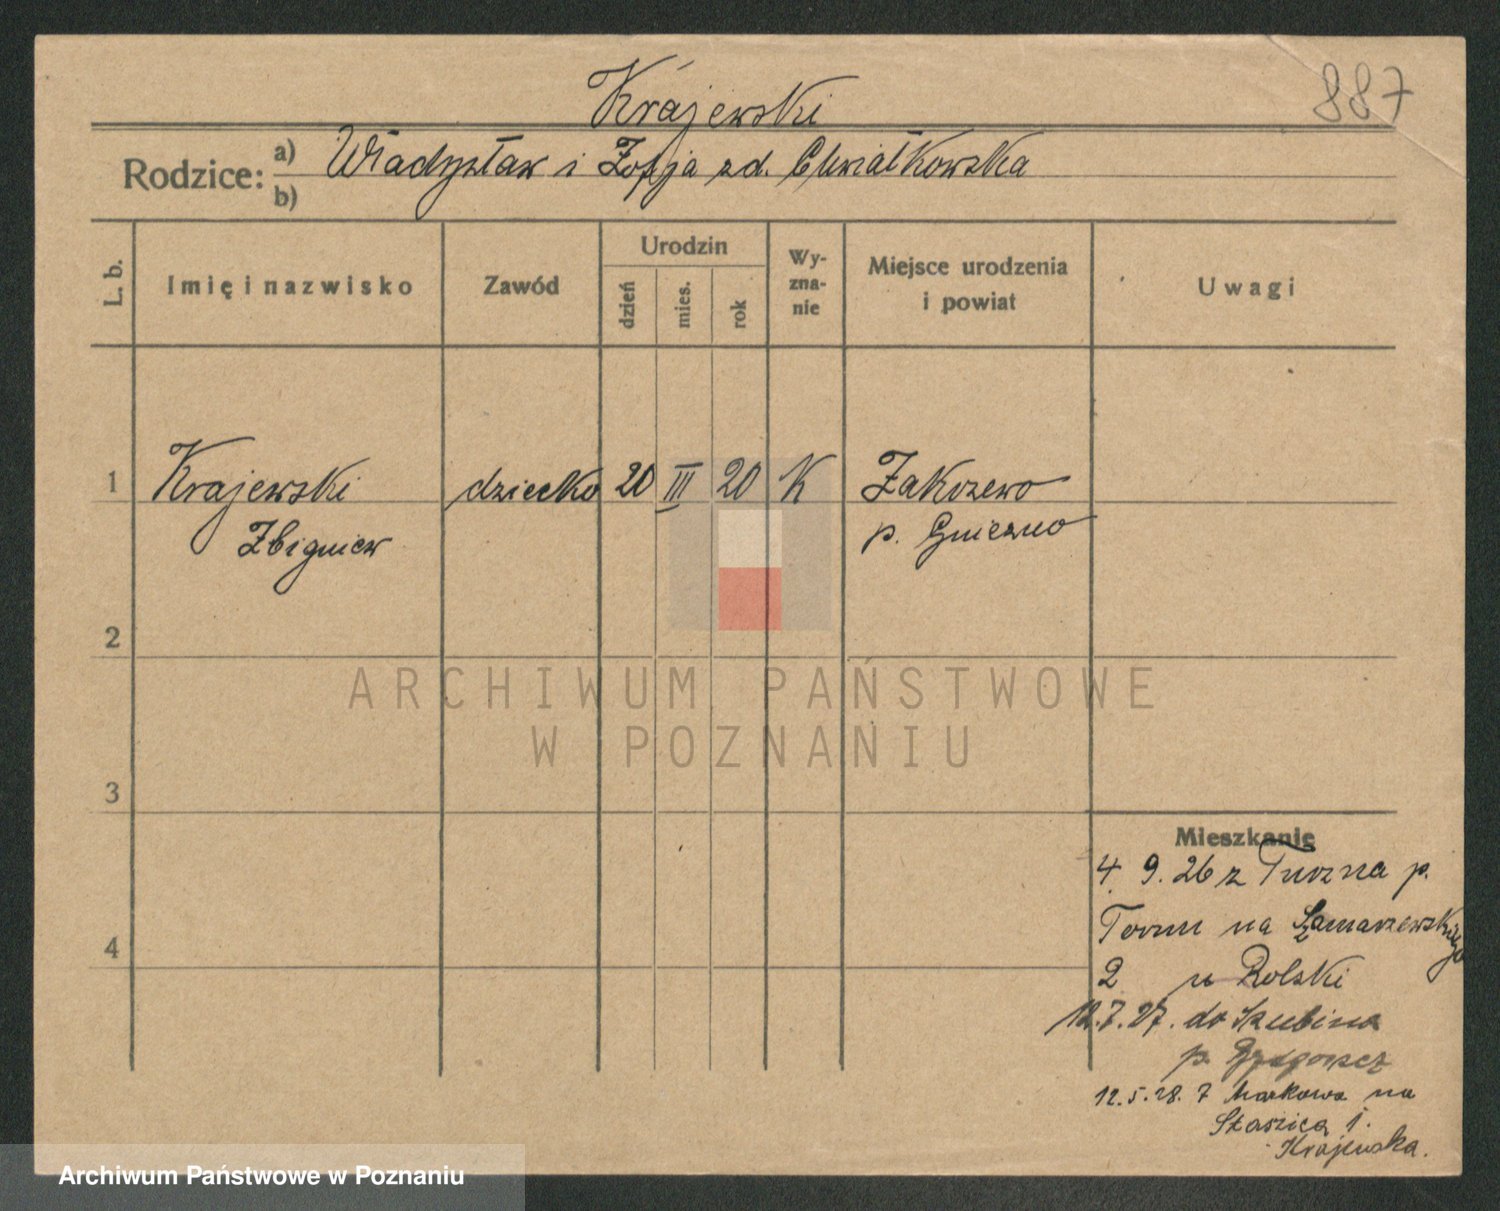 Krajewski
887
Rodzice: a) Władysław i Zofja zd. Chwiałkowska
b)
L. b.
Imię i nazwisko
Zawód
Urodzin
dzień
mies.
rok
Wy-
zna-
nie
Miejsce urodzenia
i powiat
Uwagi
1 Krajewski dziecko 20 III 20 K Zakrzewo
Zbigniew p. Gniezno
2
3
4
Mieszkanie
4. 9. 26 z Turzna p.
Toruń na Szamarzewskiego
2 u Rolski
12.7.27. do Szubina
p. Bydgoszcz
12.5.28. z Markowa na
Staszica 1.
Krajewska.
ARCHIWUM PAŃSTWOWE
W POZNANIU
Archiwum Państwowe w Poznaniu